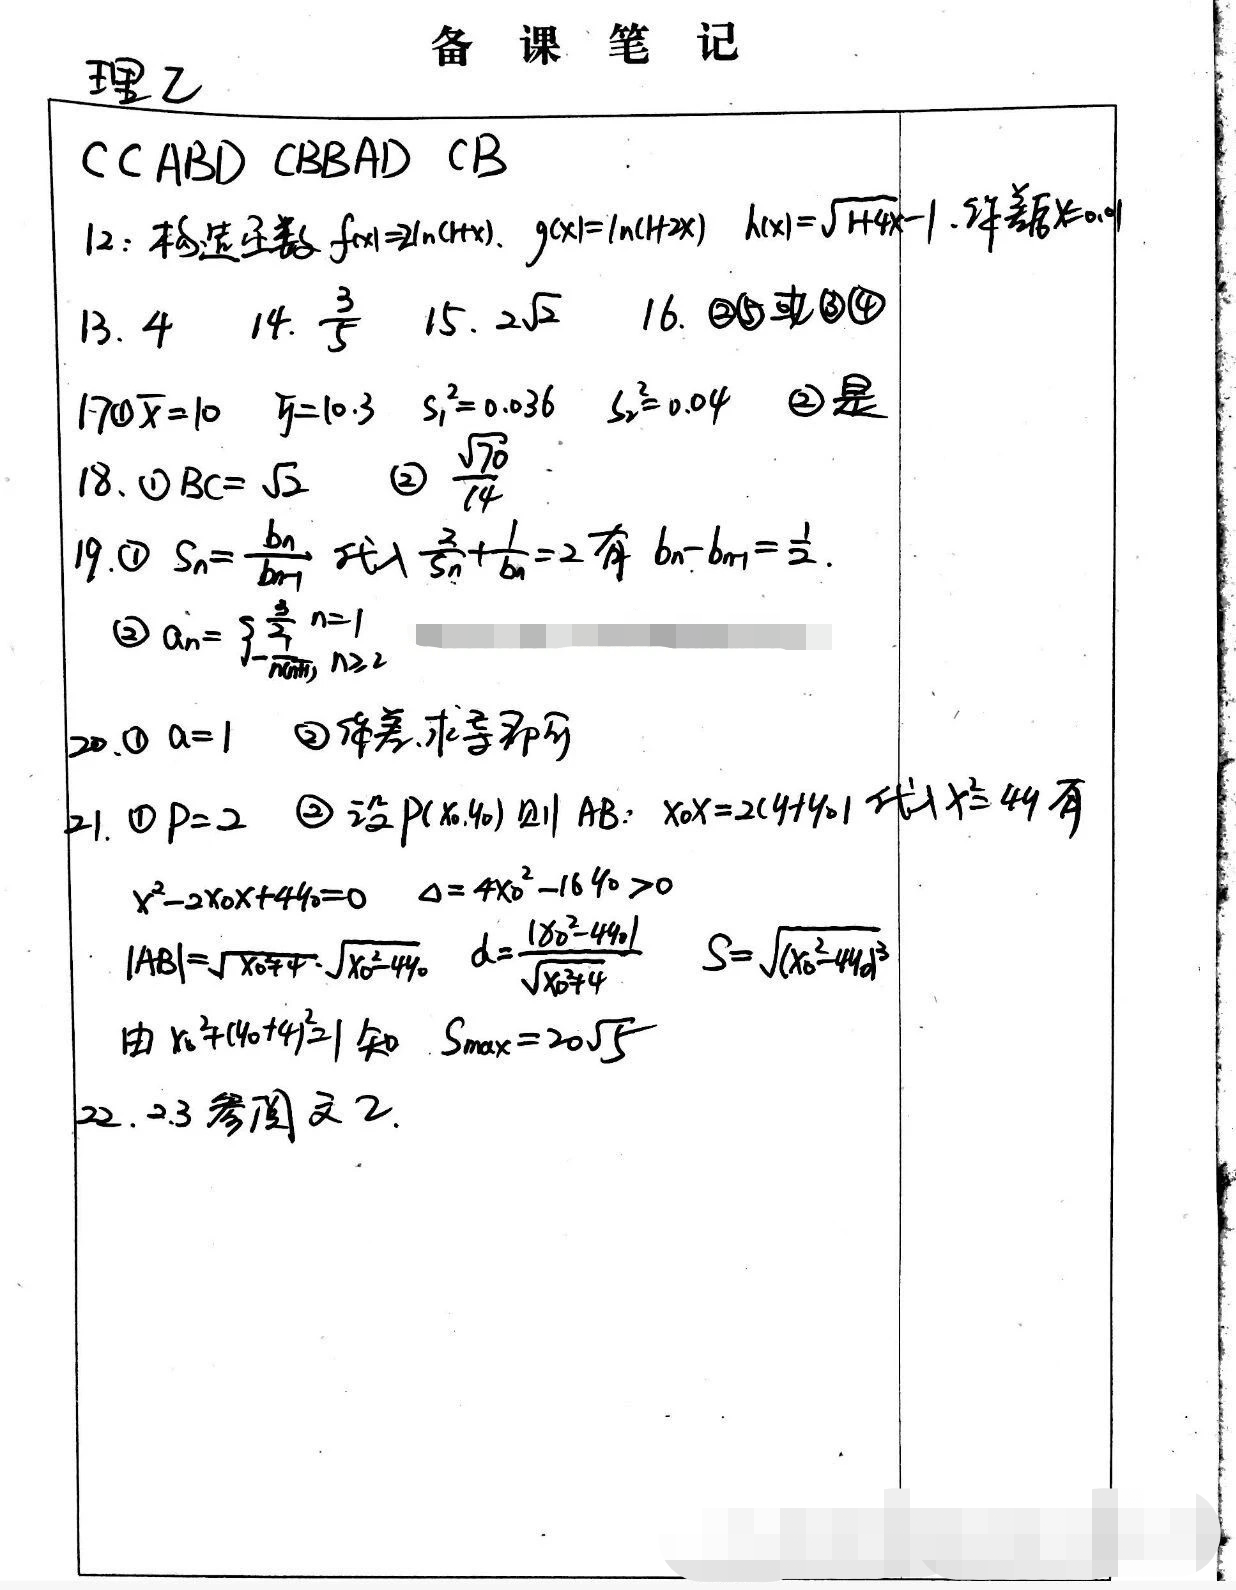 备课笔记
理乙
CCABD CBBAD CB
12: 构造函数 f(x)=2ln(1+x). g(x)=ln(1+2x) h(x)=√(1+4x)-1. 作差后x=0.01
13. 4 14. 3/5 15. 2√2 16. ②⑤或③④
17① x̄=10 ȳ=10.3 S₁²=0.036 S₂²=0.04 ②是
18. ① BC=√2 ② √70/14
19. ① Sn=bn/bn-1 代入 2/Sn+1/bn=2 有 bn-bn-1=1/2.
② an={3/2 n=1
-1/n(n+1) n≥2
20. ① a=1 ②作差.求导即可
21. ① P=2 ② 设P(x₀.y₀) 则 AB: x₀x=2(y+y₀) 代入x²=4y 有
x²-2x₀x+4y₀=0 Δ=4x₀²-16y₀>0
|AB|=√(x₀²+4)·√(x₀²-4y₀) d=|x₀²-4y₀|/√(x₀²+4) S=√(x₀²-4y₀)³
由 x₀²+(y₀+4)²=1 知 Smax=20√5
22. 23 参阅文乙.